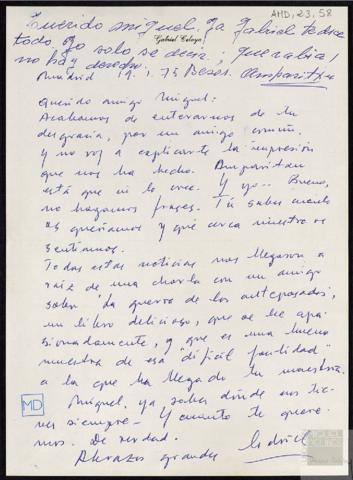 AHD, 23, 58
Querido Miguel, Ya Gabriel te dice
todo, yo solo se decir: ¡que rabia!
Gabriel Celaya
no hay derecho. Besos. Amparitxu
Madrid 19, 1, 75
Querido amigo Miguel:
Acabamos de enterarnos de tu
desgracia, por un amigo común.
Y no voy a explicarte la impresión
que nos ha hecho. Amparitxu
está que ni lo cree. Y yo... Bueno,
no hagamos frases. Tú sabes cuanto
os queríamos y qué cerca nuestro os
sentíamos.
Todas estas noticias nos llegaron a
raíz de una charla con un amigo
sobre "La guerra de los antepasados",
un libro delicioso, que se lee apa-
sionadamente, y que es una buena
muestra de esa "difícil facilidad"
a la que ha llegado tu maestría.
Miguel, ya sabes dónde nos tie-
nes siempre - Y cuanto te quere-
mos. De verdad.
Abrazos grandes
Gabriel
MD